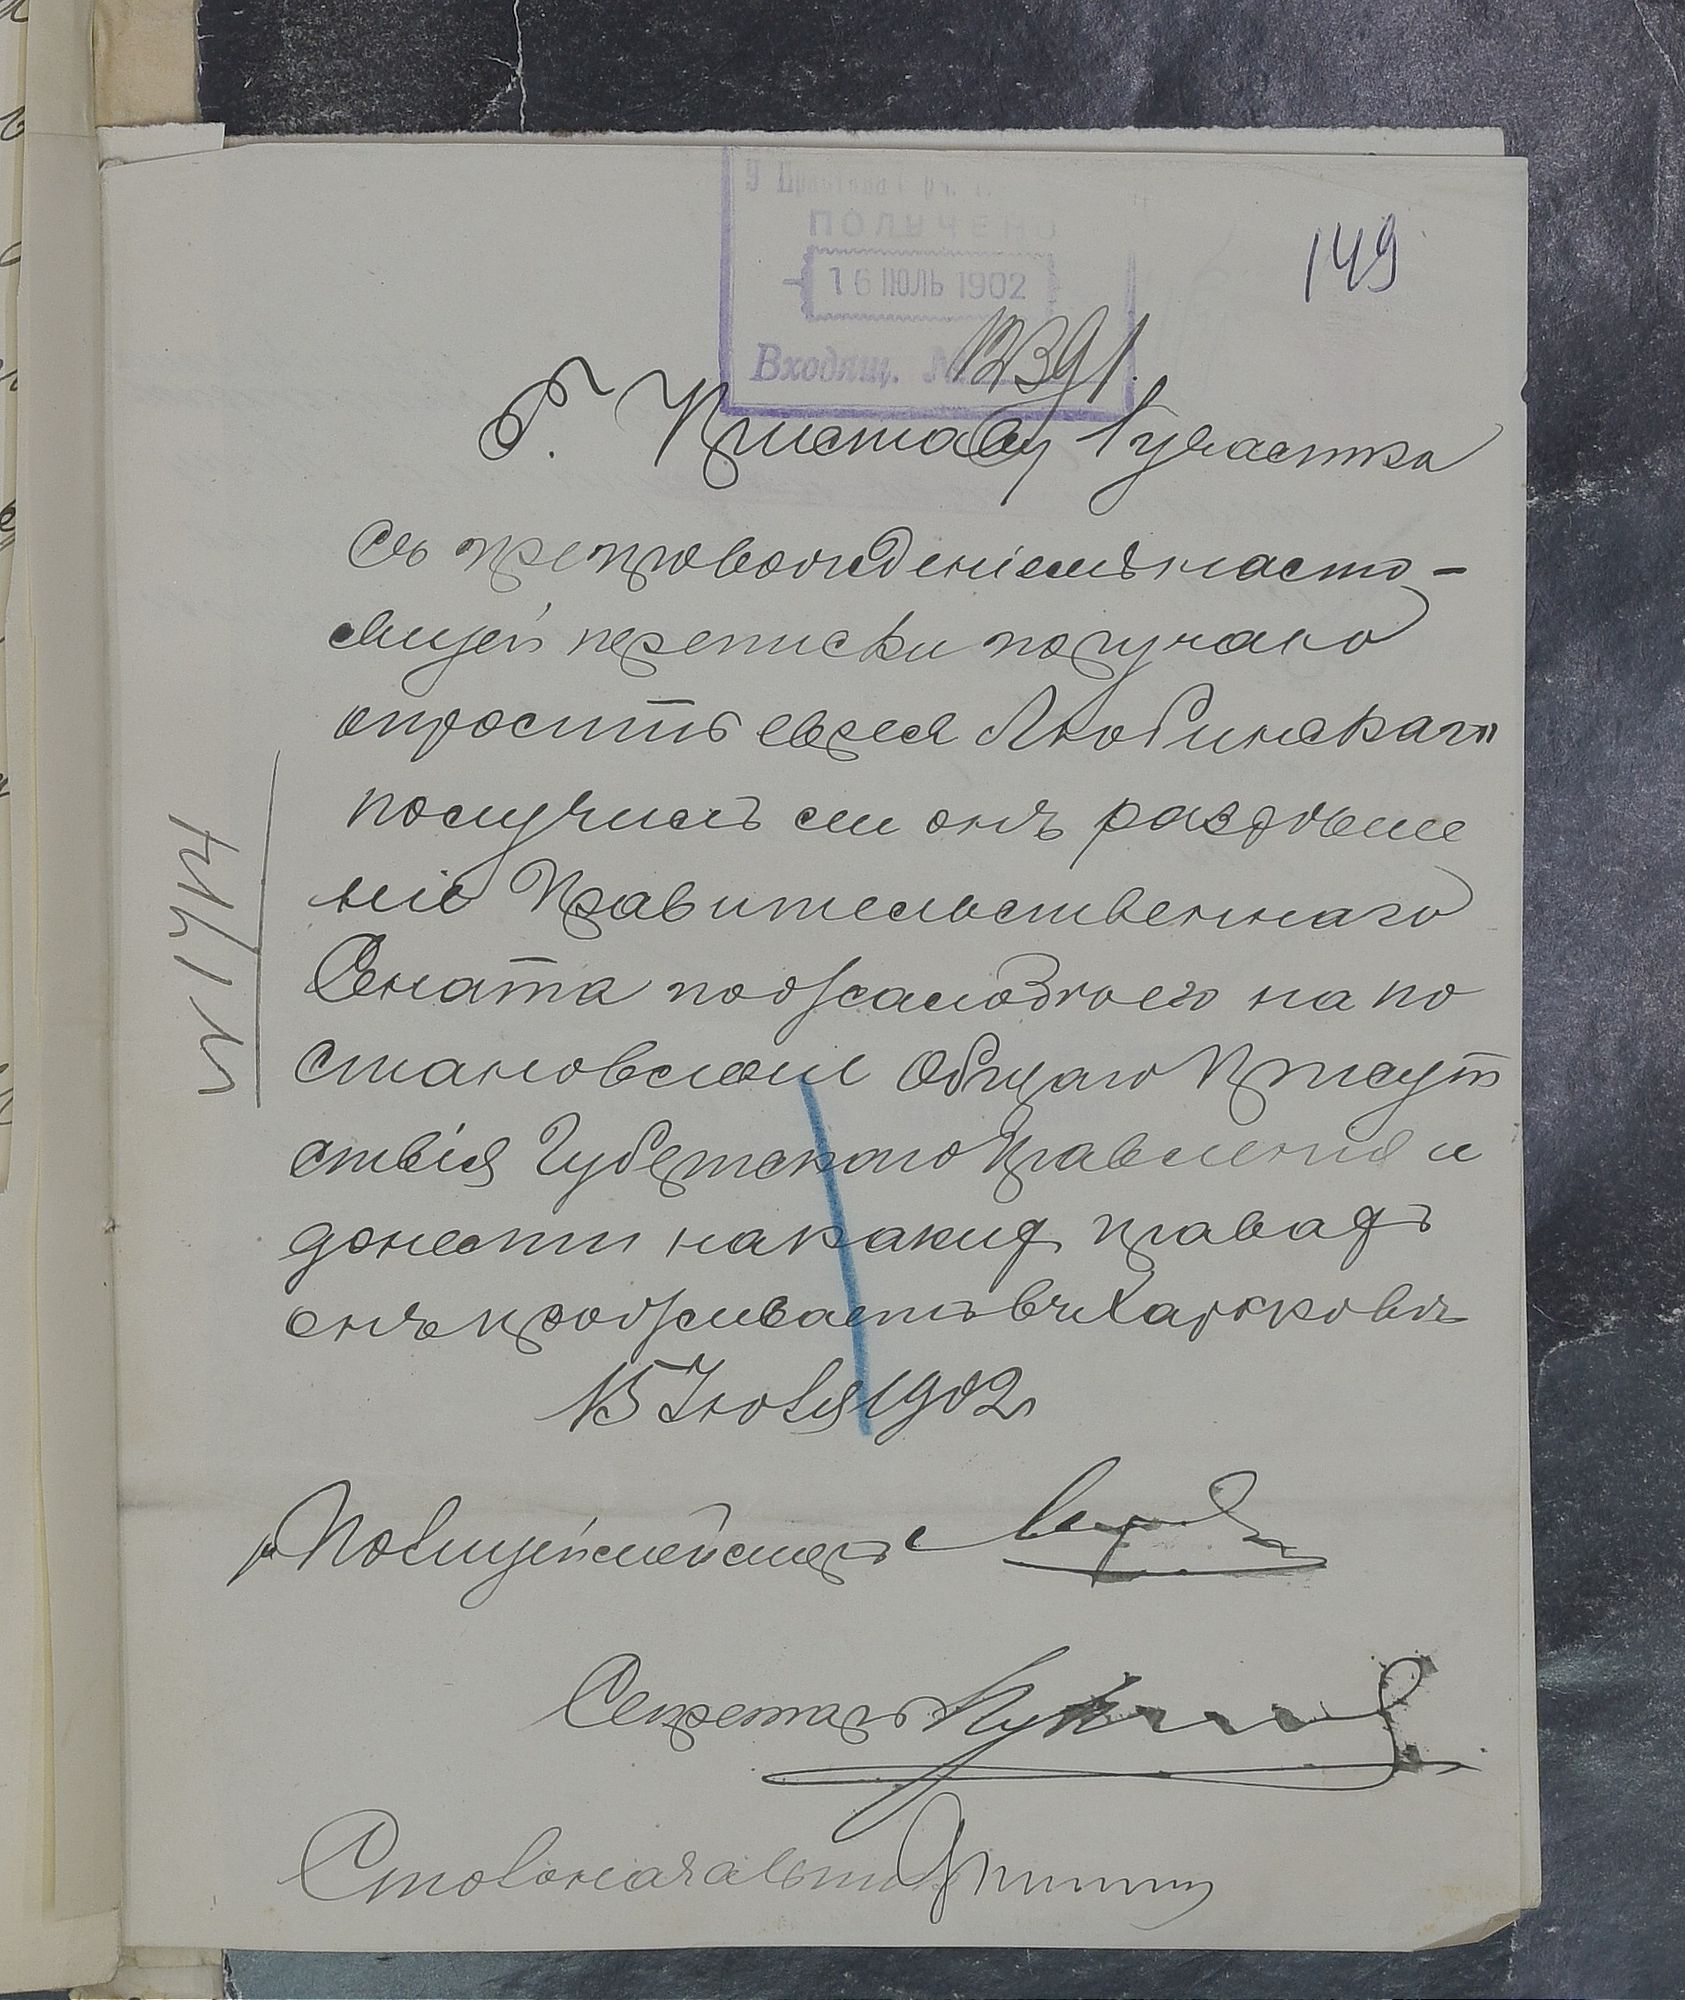 149
У Пристава 1 уч. г.
ПОЛУЧЕНО
16 ІЮЛЬ 1902
Входящ. № 12391.
Г. Приставу 1 участка
съ препровожденіемъ насто-
ящей переписки поручаю
спросить еврея Любинскаго
получилъ ли онъ разрѣше
ніе Правительственнаго
Сената по жалобѣ его на по
становленіе Общаго Присут
ствія Губернскаго Правленія и
донести на какихъ правахъ
онъ проживаетъ въ Харьковѣ
15 Іюля 1902
Полицеймейстеръ
Секретарь
Столоначальникъ